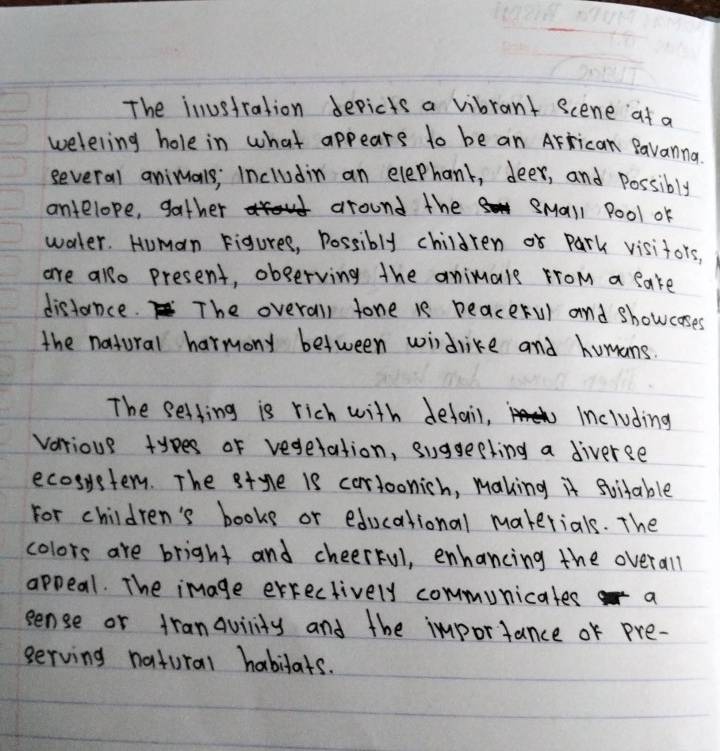 The illustration depicts a vibrant scene at a
weteling hole in what appears to be an African Savanna.
Several animals; Includin an elephant, deer, and possibly
antelope, gather around the small pool of
water. Human figures, possibly children or park visitors,
are also present, observing the animals from a safe
distance. The overall tone is peaceful and showcases
the natural harmony between wildlife and humans.
The setting is rich with detail, Including
various types of vegetation, suggesting a diverse
ecosystem. The style is cartoonish, making it suitable
for children's books or educational materials. The
colors are bright and cheerful, enhancing the overall
appeal. The image effectively communicates a
sense of tranquility and the importance of pre-
serving natural habitats.